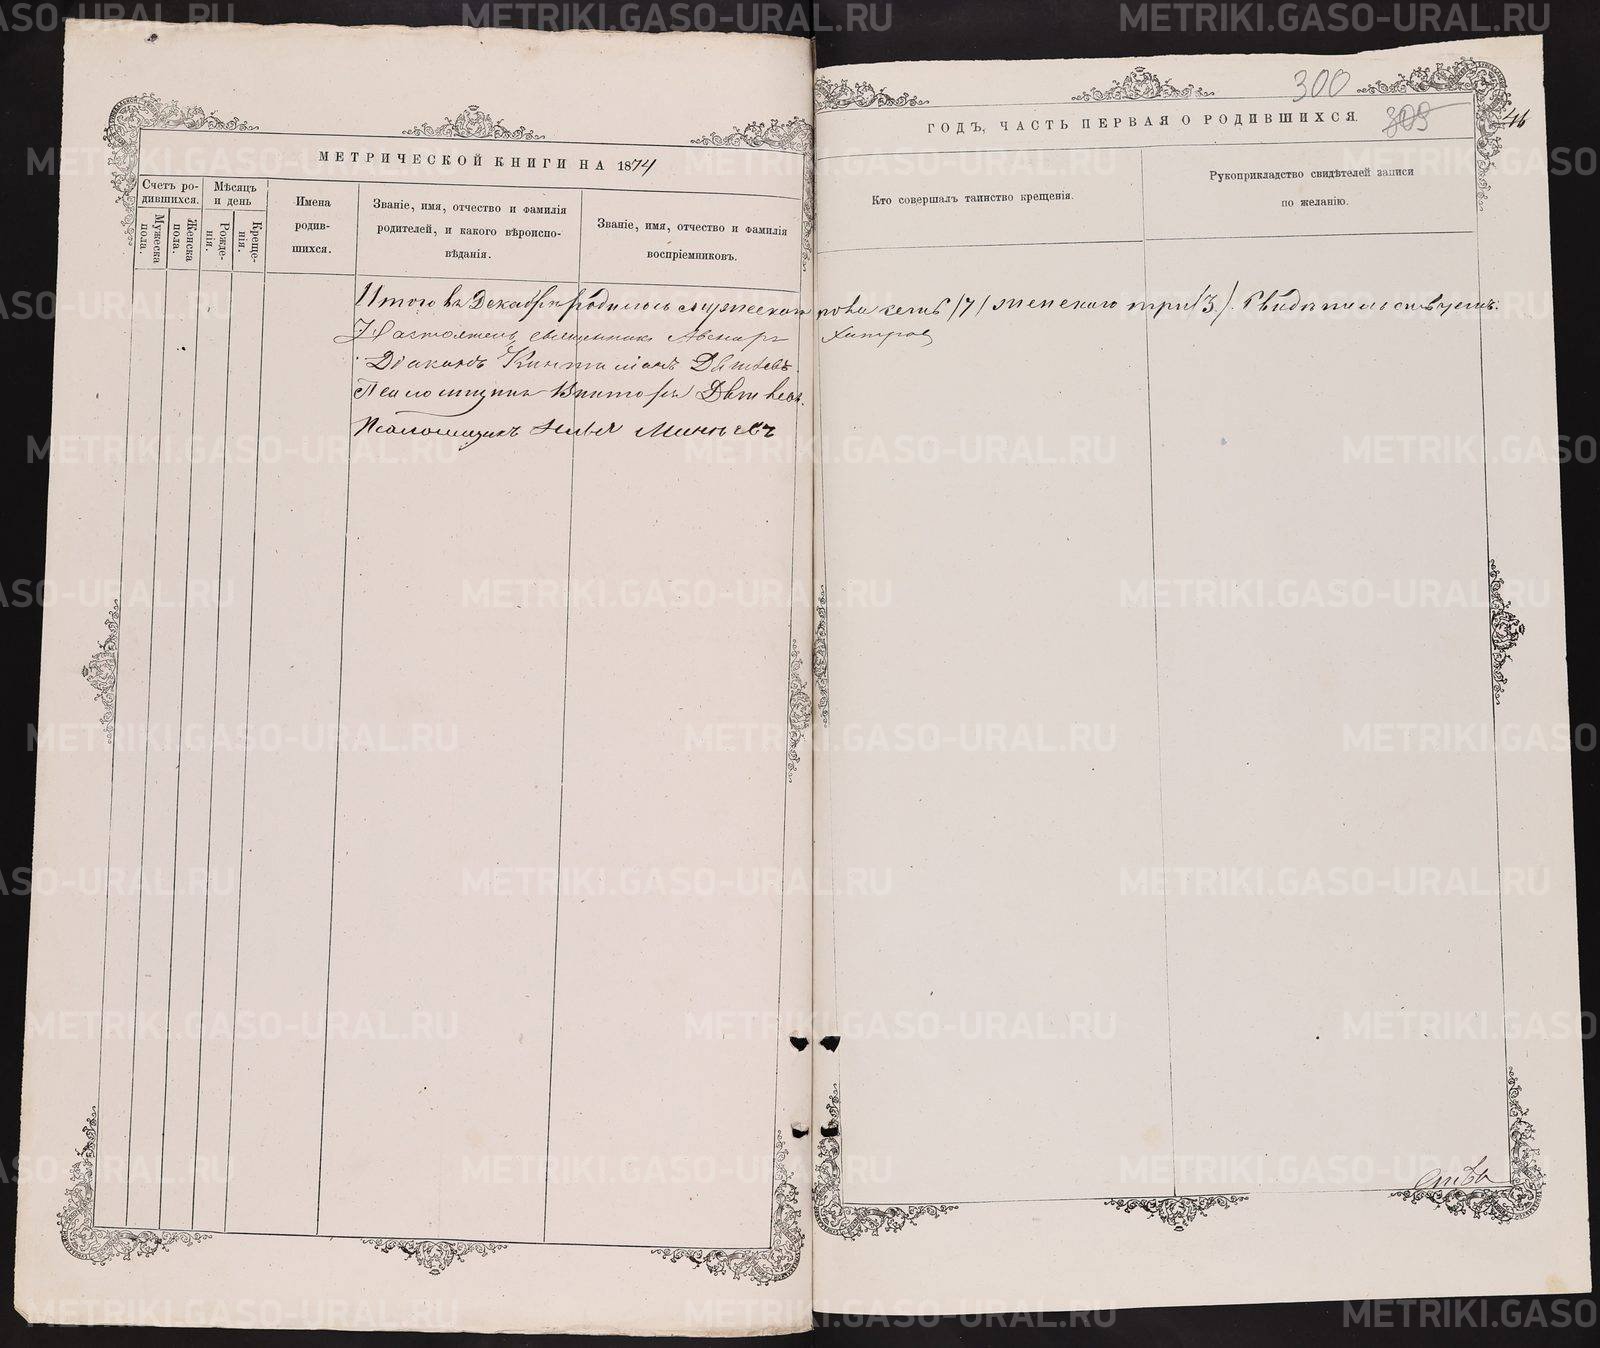 МЕТРИЧЕСКОЙ КНИГИ НА 1874
ГОДЪ, ЧАСТЬ ПЕРВАЯ О РОДИВШИХСЯ.
300
305
46
Счетъ ро-
дившихся.
Мужеска
пола.
Женска
пола.
Мѣсяцъ
и день
Рожде-
нія.
Креще-
нія.
Имена
родив-
шихся.
Званіе, имя, отчество и фамилія
родителей, и какого вѣроиспо-
вѣданія.
Званіе, имя, отчество и фамилія
воспріемниковъ.
Кто совершалъ таинство крещенія.
Рукоприкладство свидѣтелей записи
по желанію.
Итого въ Декабрѣ родилось мужескаго пола семь /7/ женскаго три /3/. Свидѣтельствуемъ:
Настоятель священникъ Хитров
Діаконъ
Псаломщикъ Викторъ
Псаломщикъ
METRIKI.GASO-URAL.RU